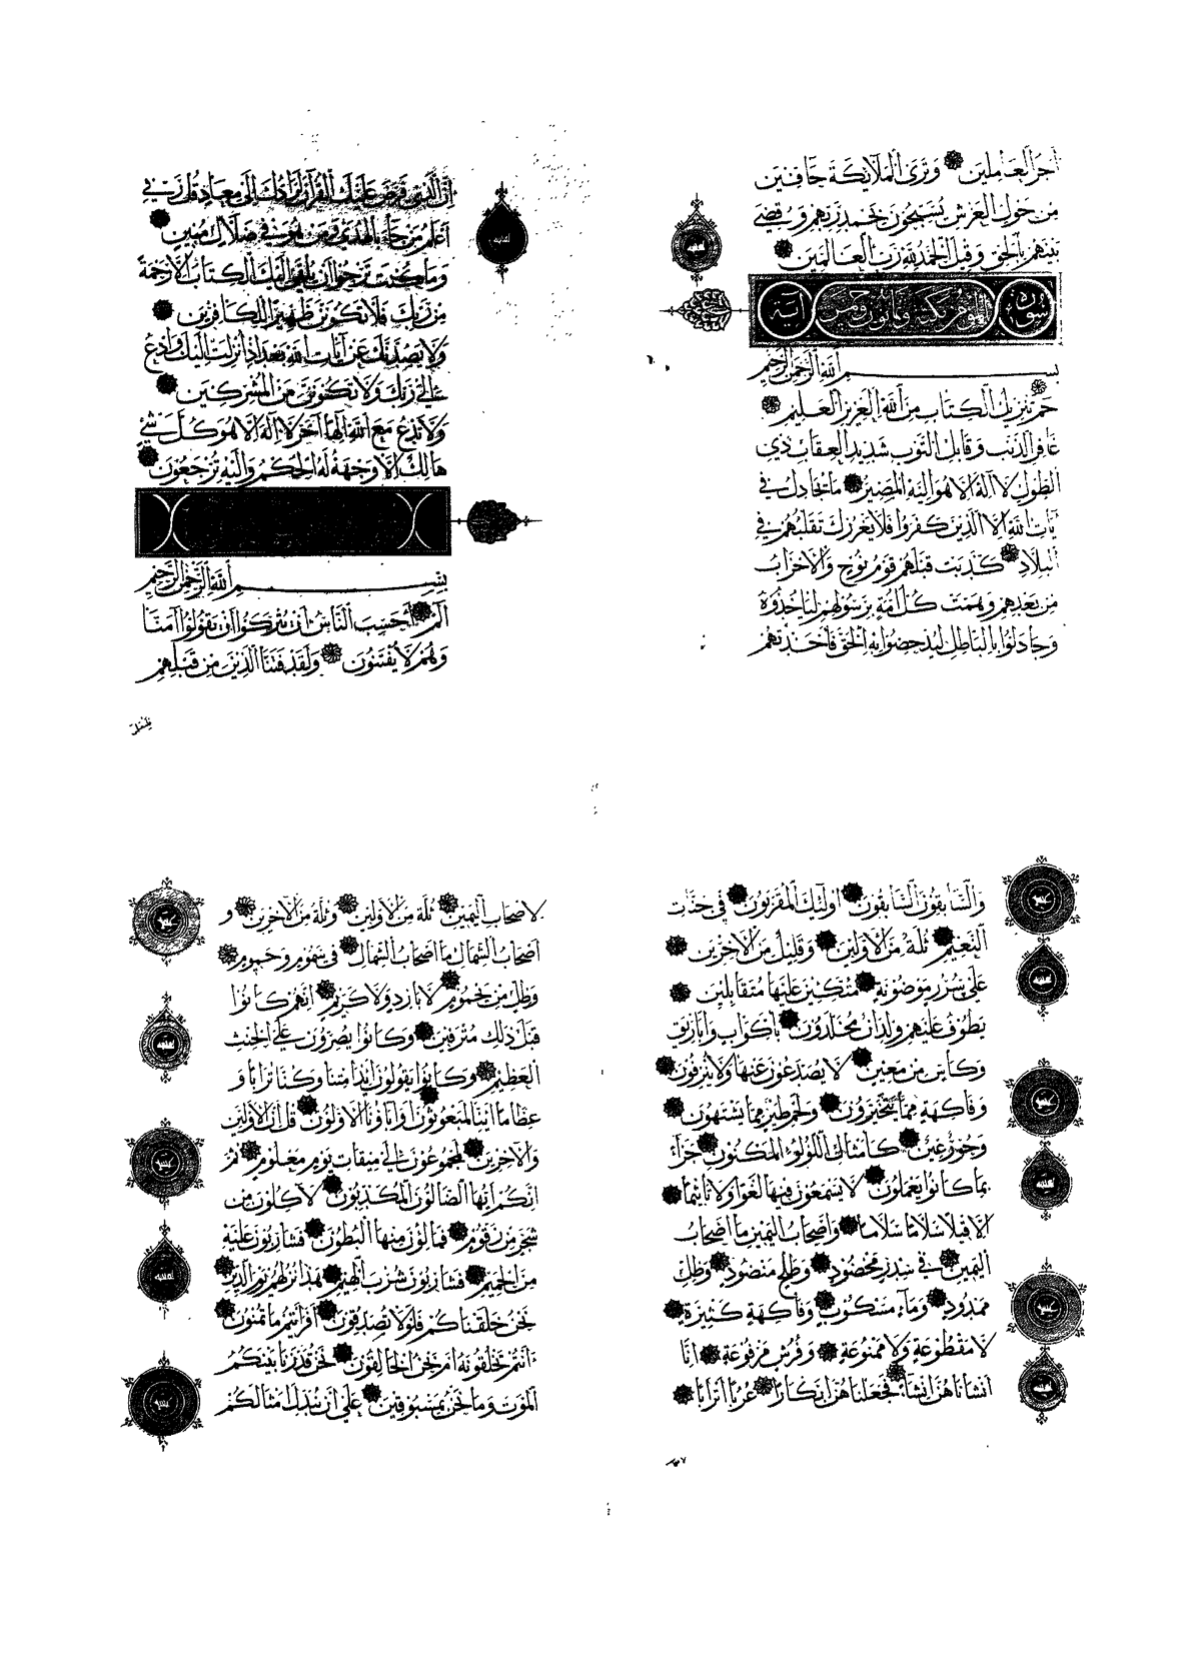 أجر العاملين وترى الملائكة حافين
من حول العرش يسبحون بحمد ربهم وقضي
بينهم بالحق وقيل الحمد لله رب العالمين
سورة المؤمن وثمانون وخمس آية
بسم الله الرحمن الرحيم
حم تنزيل الكتاب من الله العزيز العليم
غافر الذنب وقابل التوب شديد العقاب ذي
الطول لا اله الا هو اليه المصير ما يجادل في
آيات الله الا الذين كفروا فلا يغررك تقلبهم في
البلاد كذبت قبلهم قوم نوح والاحزاب
من بعدهم وهمت كل امة برسولهم ليأخذوه
وجادلوا بالباطل ليدحضوا به الحق فأخذتهم
إن الذي فرض عليك القرآن لرادك إلى معاد قل ربي
أعلم من جاء بالهدى ومن هو في ضلال مبين
وما كنت ترجوا ان يلقى اليك الكتاب الا رحمة
من ربك فلا تكونن ظهيرا للكافرين
ولا يصدنك عن آيات الله بعد اذ أنزلت اليك وادع
الى ربك ولا تكونن من المشركين
ولا تدع مع الله الها آخر لا اله الا هو كل شيء
هالك الا وجهه له الحكم واليه ترجعون
بسم الله الرحمن الرحيم
الم أحسب الناس ان يتركوا ان يقولوا آمنا
وهم لا يفتنون ولقد فتنا الذين من قبلهم
والسابقون السابقون اولئك المقربون في جنات
النعيم ثلة من الاولين وقليل من الآخرين
على سرر موضونة متكئين عليها متقابلين
يطوف عليهم ولدان مخلدون بأكواب وأباريق
وكأس من معين لا يصدعون عنها ولا ينزفون
وفاكهة مما يتخيرون ولحم طير مما يشتهون
وحور عين كأمثال اللؤلؤ المكنون جزاء
بما كانوا يعملون لا يسمعون فيها لغوا ولا تأثيما
الا قيلا سلاما سلاما واصحاب اليمين ما اصحاب
اليمين في سدر مخضود وطلح منضود وظل
ممدود وماء مسكوب وفاكهة كثيرة
لا مقطوعة ولا ممنوعة وفرش مرفوعة انا
انشأناهن انشاء فجعلناهن ابكارا عربا أترابا
لاصحاب اليمين ثلة من الاولين وثلة من الآخرين و
اصحاب الشمال ما اصحاب الشمال في سموم وحميم
وظل من يحموم لا بارد ولا كريم انهم كانوا
قبل ذلك مترفين وكانوا يصرون على الحنث
العظيم وكانوا يقولون أئذا متنا وكنا ترابا و
عظاما ائنا لمبعوثون وآباؤنا الاولون قل ان الاولين
والآخرين لمجموعون الى ميقات يوم معلوم ثم
انكم أيها الضالون المكذبون لآكلون من
شجر من زقوم فمالؤن منها البطون فشاربون عليه
من الحميم فشاربون شرب الهيم هذا نزلهم يوم الدين
نحن خلقناكم فلولا تصدقون أفرأيتم ما تمنون
ءانتم تخلقونه ام نحن الخالقون نحن قدرنا بينكم
الموت وما نحن بمسبوقين على أن نبدل امثالكم